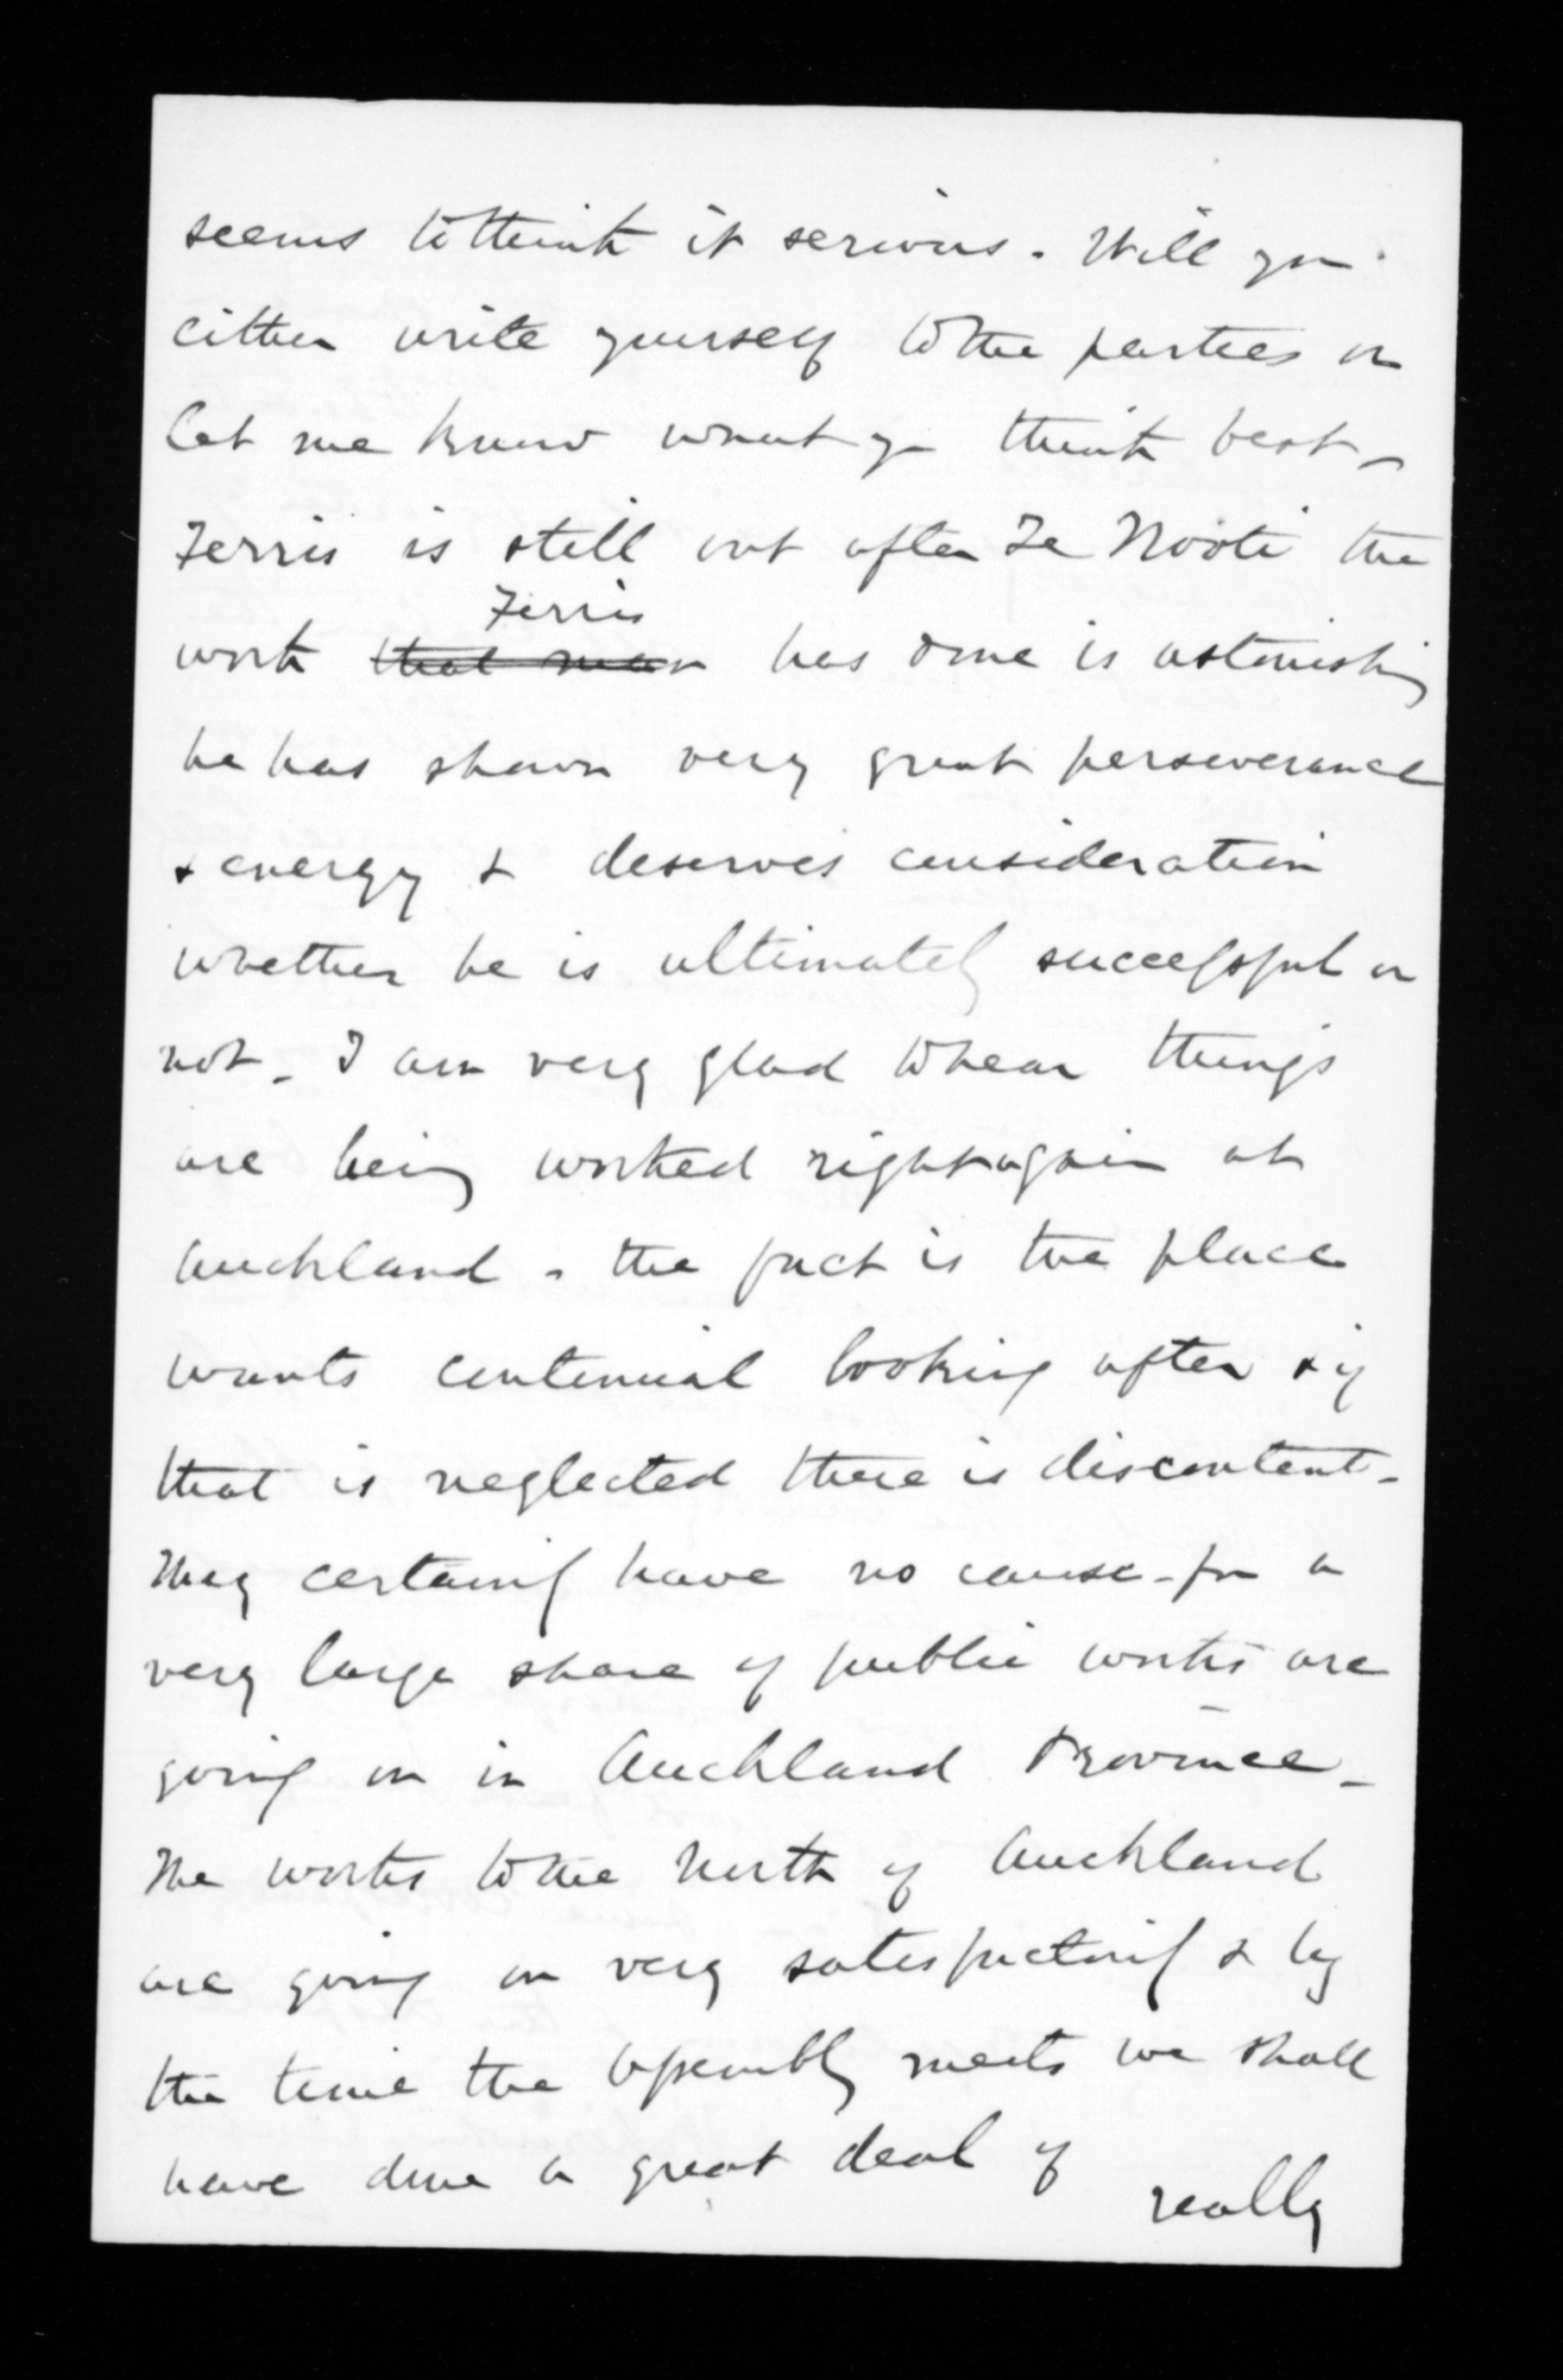 seems to think it serious. Will you
either write yourself to the parties or
let me know what you think best -
Ferris is still out after Te Kooti the
work ~~that man~~ Ferris has done is astonishing
he has shown very great perseverance
& energy & deserves consideration
whether he is ultimately successful or
not - I am very glad to hear things
are being worked right again at
Auckland - the fact is the place
wants continual looking after & if
that is neglected there is discontent -
They certainly have no cause - for a
very large share of public works are
going on in Auckland Province -
The works to the North of Auckland
are going on very satisfactorily & by
the time the Assembly meets we shall
have done a great deal of
really